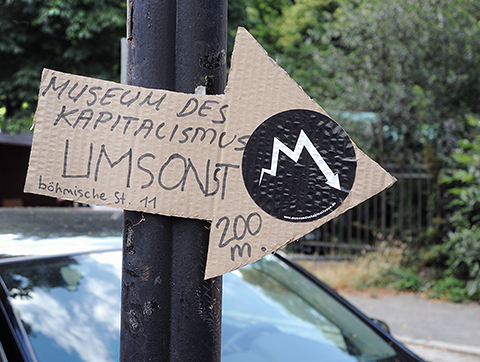 MUSEUM DES
KAPITALISMUS
UMSONST
böhmische St. 11
200
m.